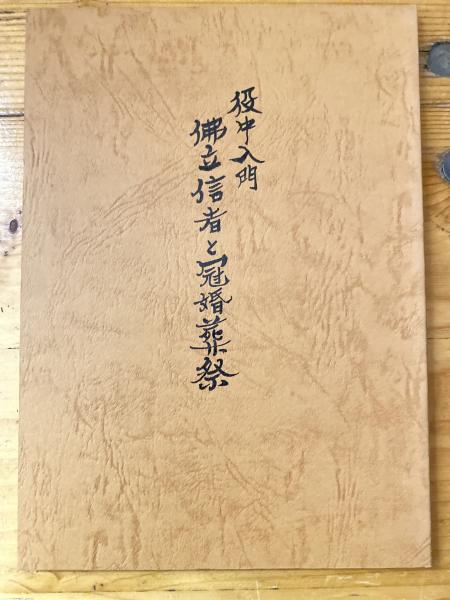 役中入門
佛立信者と冠婚葬祭